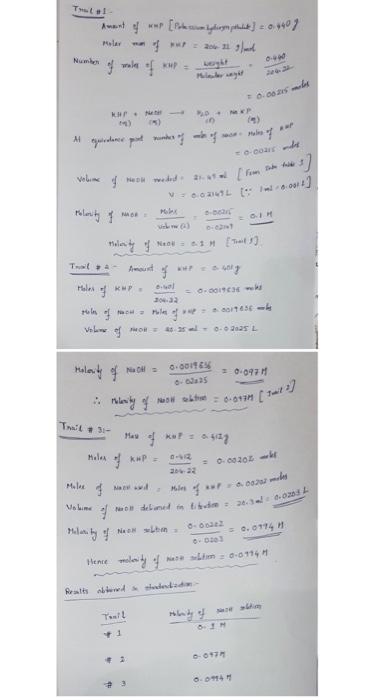 Trail #1-
Amount of KHP [Potassium hydrogen pthalate] = 0.440 g
Molar mass of KHP = 204.22 g/mol
Number of moles of KHP = weight / Molecular weight = 0.440 / 204.22
= 0.00215 moles
KHP + NaOH → H2O + NaKP
(aq) (aq) (l) (aq)
At equivalence point number of moles of NaOH = Moles of KHP
= 0.00215 moles
Volume of NaOH needed = 21.49 ml [From Data table 1]
V = 0.02149 L [∵ 1ml = 0.001 L]
Molarity of NaOH = Moles / Volume (L) = 0.00215 / 0.02149 = 0.1 M
Molarity of NaOH = 0.1 M [Trail 1]
Trail #2- Amount of KHP = 0.401g
Moles of KHP = 0.401 / 204.22 = 0.0019636 moles
Moles of NaOH = Moles of KHP = 0.0019636 moles
Volume of NaOH = 20.25 ml = 0.02025 L
Molarity of NaOH = 0.0019636 / 0.02025 = 0.097 M
∴ Molarity of NaOH solution = 0.097M [Trail 2]
Trail #3:-
Mass of KHP = 0.412g
Moles of KHP = 0.412 / 204.22 = 0.00202 moles
Moles of NaOH used = Moles of KHP = 0.00202 moles
Volume of NaOH delivered in titration = 20.3 ml = 0.0203 L
Molarity of NaOH solution = 0.00202 / 0.0203 = 0.0994 M
Hence molarity of NaOH solution = 0.0994 M
Results obtained in standardization:-
Trail Molarity of NaOH solution
#1 0.1 M
#2 0.097M
#3 0.0994 M